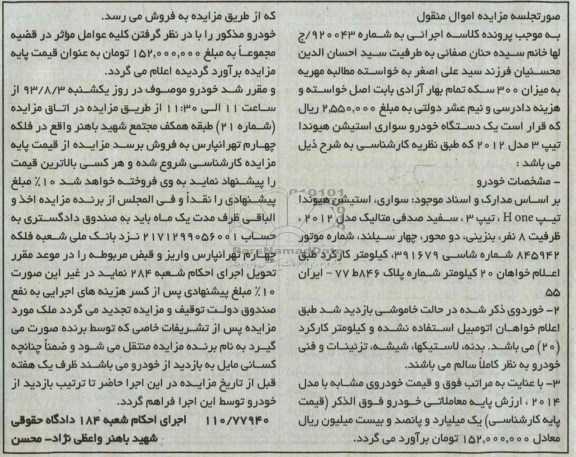 صورتجلسه مزایده اموال منقول
به موجب پرونده کلاسه اجرائی به شماره ۹۲۰۰۴۳/ج
لها خانم سیده حنان صفائی به طرفیت سید احسان الدین
محسنیان فرزند سید علی اصغر به خواسته مطالبه مهریه
به میزان ۳۰۰ سکه تمام بهار آزادی بابت اصل خواسته و
هزینه دادرسی و نیم عشر دولتی به مبلغ ۲,۵۵۰,۰۰۰ ریال
که قرار است یک دستگاه خودرو سواری استیشن هیوندا
تیپ ۳ مدل ۲۰۱۲ که طبق نظریه کارشناسی به شرح ذیل
می باشد :
- مشخصات خودرو
بر اساس مدارک و اسناد موجود: سواری، استیشن هیوندا
تیپ H one ، تیپ ۳ ، سفید صدفی متالیک مدل ۲۰۱۲ ،
ظرفیت ۸ نفر، بنزینی، دو محور، چهار سیلند، شماره موتور
۸۴۵۹۴۲ شماره شاسی ۳۹۱۶۷۹، کیلومتر کارکرد طبق
اعلام خواهان ۲۰ کیلومتر شماره پلاک ۸۴۶ط ۷۷ - ایران
۵۵
۲- خودروی ذکر شده در حالت خاموشی بازدید شد طبق
اعلام خواهان اتومبیل استفاده نشده و کیلومتر کارکرد
(۲۰) می باشد. بدنه، لاستیکها، شیشه، تزئینات و فنی
خودرو به نظر کاملاً سالم می باشند.
۳- با عنایت به مراتب فوق و قیمت خودروی مشابه با مدل
۲۰۱۴ ، ارزش پایه معاملاتی خودرو فوق الذکر (قیمت
پایه کارشناسی) یک میلیارد و پانصد و بیست میلیون ریال
معادل ۱۵۲,۰۰۰,۰۰۰ تومان برآورد می گردد.
که از طریق مزایده به فروش می رسد.
خودرو مذکور را با در نظر گرفتن کلیه عوامل مؤثر در قضیه
مجموعاً به مبلغ ۱۵۲,۰۰۰,۰۰۰ تومان به عنوان قیمت پایه
مزایده برآورد گردیده اعلام می گردد.
و مقرر شد خودرو موصوف در روز یکشنبه ۹۳/۸/۳ از
ساعت ۱۱ الی ۱۱:۳۰ از طریق مزایده در اتاق مزایده
(شماره ۲۱) طبقه همکف مجتمع شهید باهنر واقع در فلکه
چهارم تهرانپارس به فروش برسد مزایده از قیمت پایه
مزایده کارشناسی شروع شده و هر کسی بالاترین قیمت
را پیشنهاد نماید به وی فروخته خواهد شد ۱۰٪ مبلغ
پیشنهادی را نقداً و فی المجلس از برنده مزایده اخذ و
الباقی ظرف مدت یک ماه باید به صندوق دادگستری به
حساب ۲۱۷۱۲۹۹۰۵۶۰۰۱ نزد بانک ملی شعبه فلکه
چهارم تهرانپارس واریز و قبض مربوطه را در موعد مقرر
تحویل اجرای احکام شعبه ۲۸۴ نماید در غیر این صورت
۱۰٪ مبلغ پیشنهادی پس از کسر هزینه های اجرایی به نفع
صندوق دولت توقیف و مزایده تجدید می گردد ملک مورد
مزایده پس از تشریفات خاصی که توسط برنده صورت می
گیرد به نام برنده مزایده منتقل می شود و ضمناً چنانچه
کسانی مایل به بازدید از خودرو می باشند ظرف یک هفته
قبل از تاریخ مزایده در این اجرا حاضر تا ترتیب بازدید از
خودرو توسط این اجرا فراهم گردد.
۱۱۰/۷۷۹۴۰ اجرای احکام شعبه ۱۸۴ دادگاه حقوقی
شهید باهنر واعظی نژاد- محسن